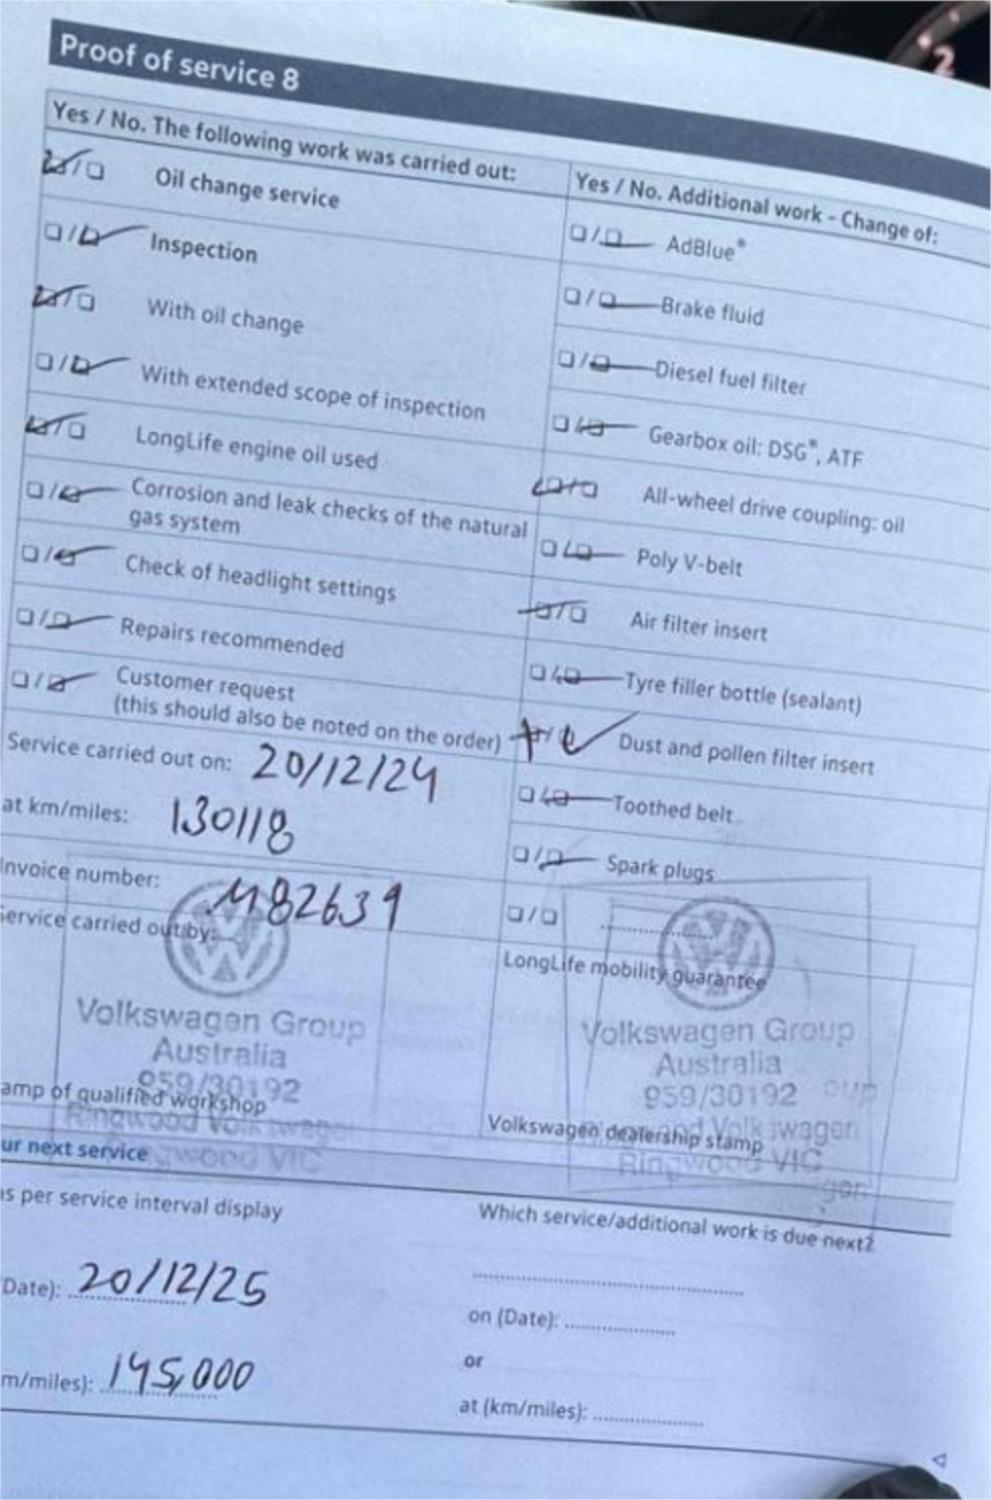 Proof of service 8
Yes / No. The following work was carried out:
Oil change service
Inspection
With oil change
With extended scope of inspection
LongLife engine oil used
Corrosion and leak checks of the natural
gas system
Check of headlight settings
Repairs recommended
Customer request
(this should also be noted on the order)
Service carried out on: 20/12/24
at km/miles: 130118
Invoice number: M82639
Service carried out by:
Volkswagen Group
Australia
959/30192
amp of qualified workshop
Ringwood Volkswagen
Ringwood VIC
Yes / No. Additional work - Change of:
AdBlue®
Brake fluid
Diesel fuel filter
Gearbox oil: DSG®, ATF
All-wheel drive coupling: oil
Poly V-belt
Air filter insert
Tyre filler bottle (sealant)
Dust and pollen filter insert
Toothed belt
Spark plugs
LongLife mobility guarantee
Volkswagen Group
Australia
959/30192
Volkswagen dealership stamp
Ringwood VIC
ur next service
as per service interval display
(Date): 20/12/25
m/miles): 145,000
Which service/additional work is due next?
on (Date):
or
at (km/miles):
2